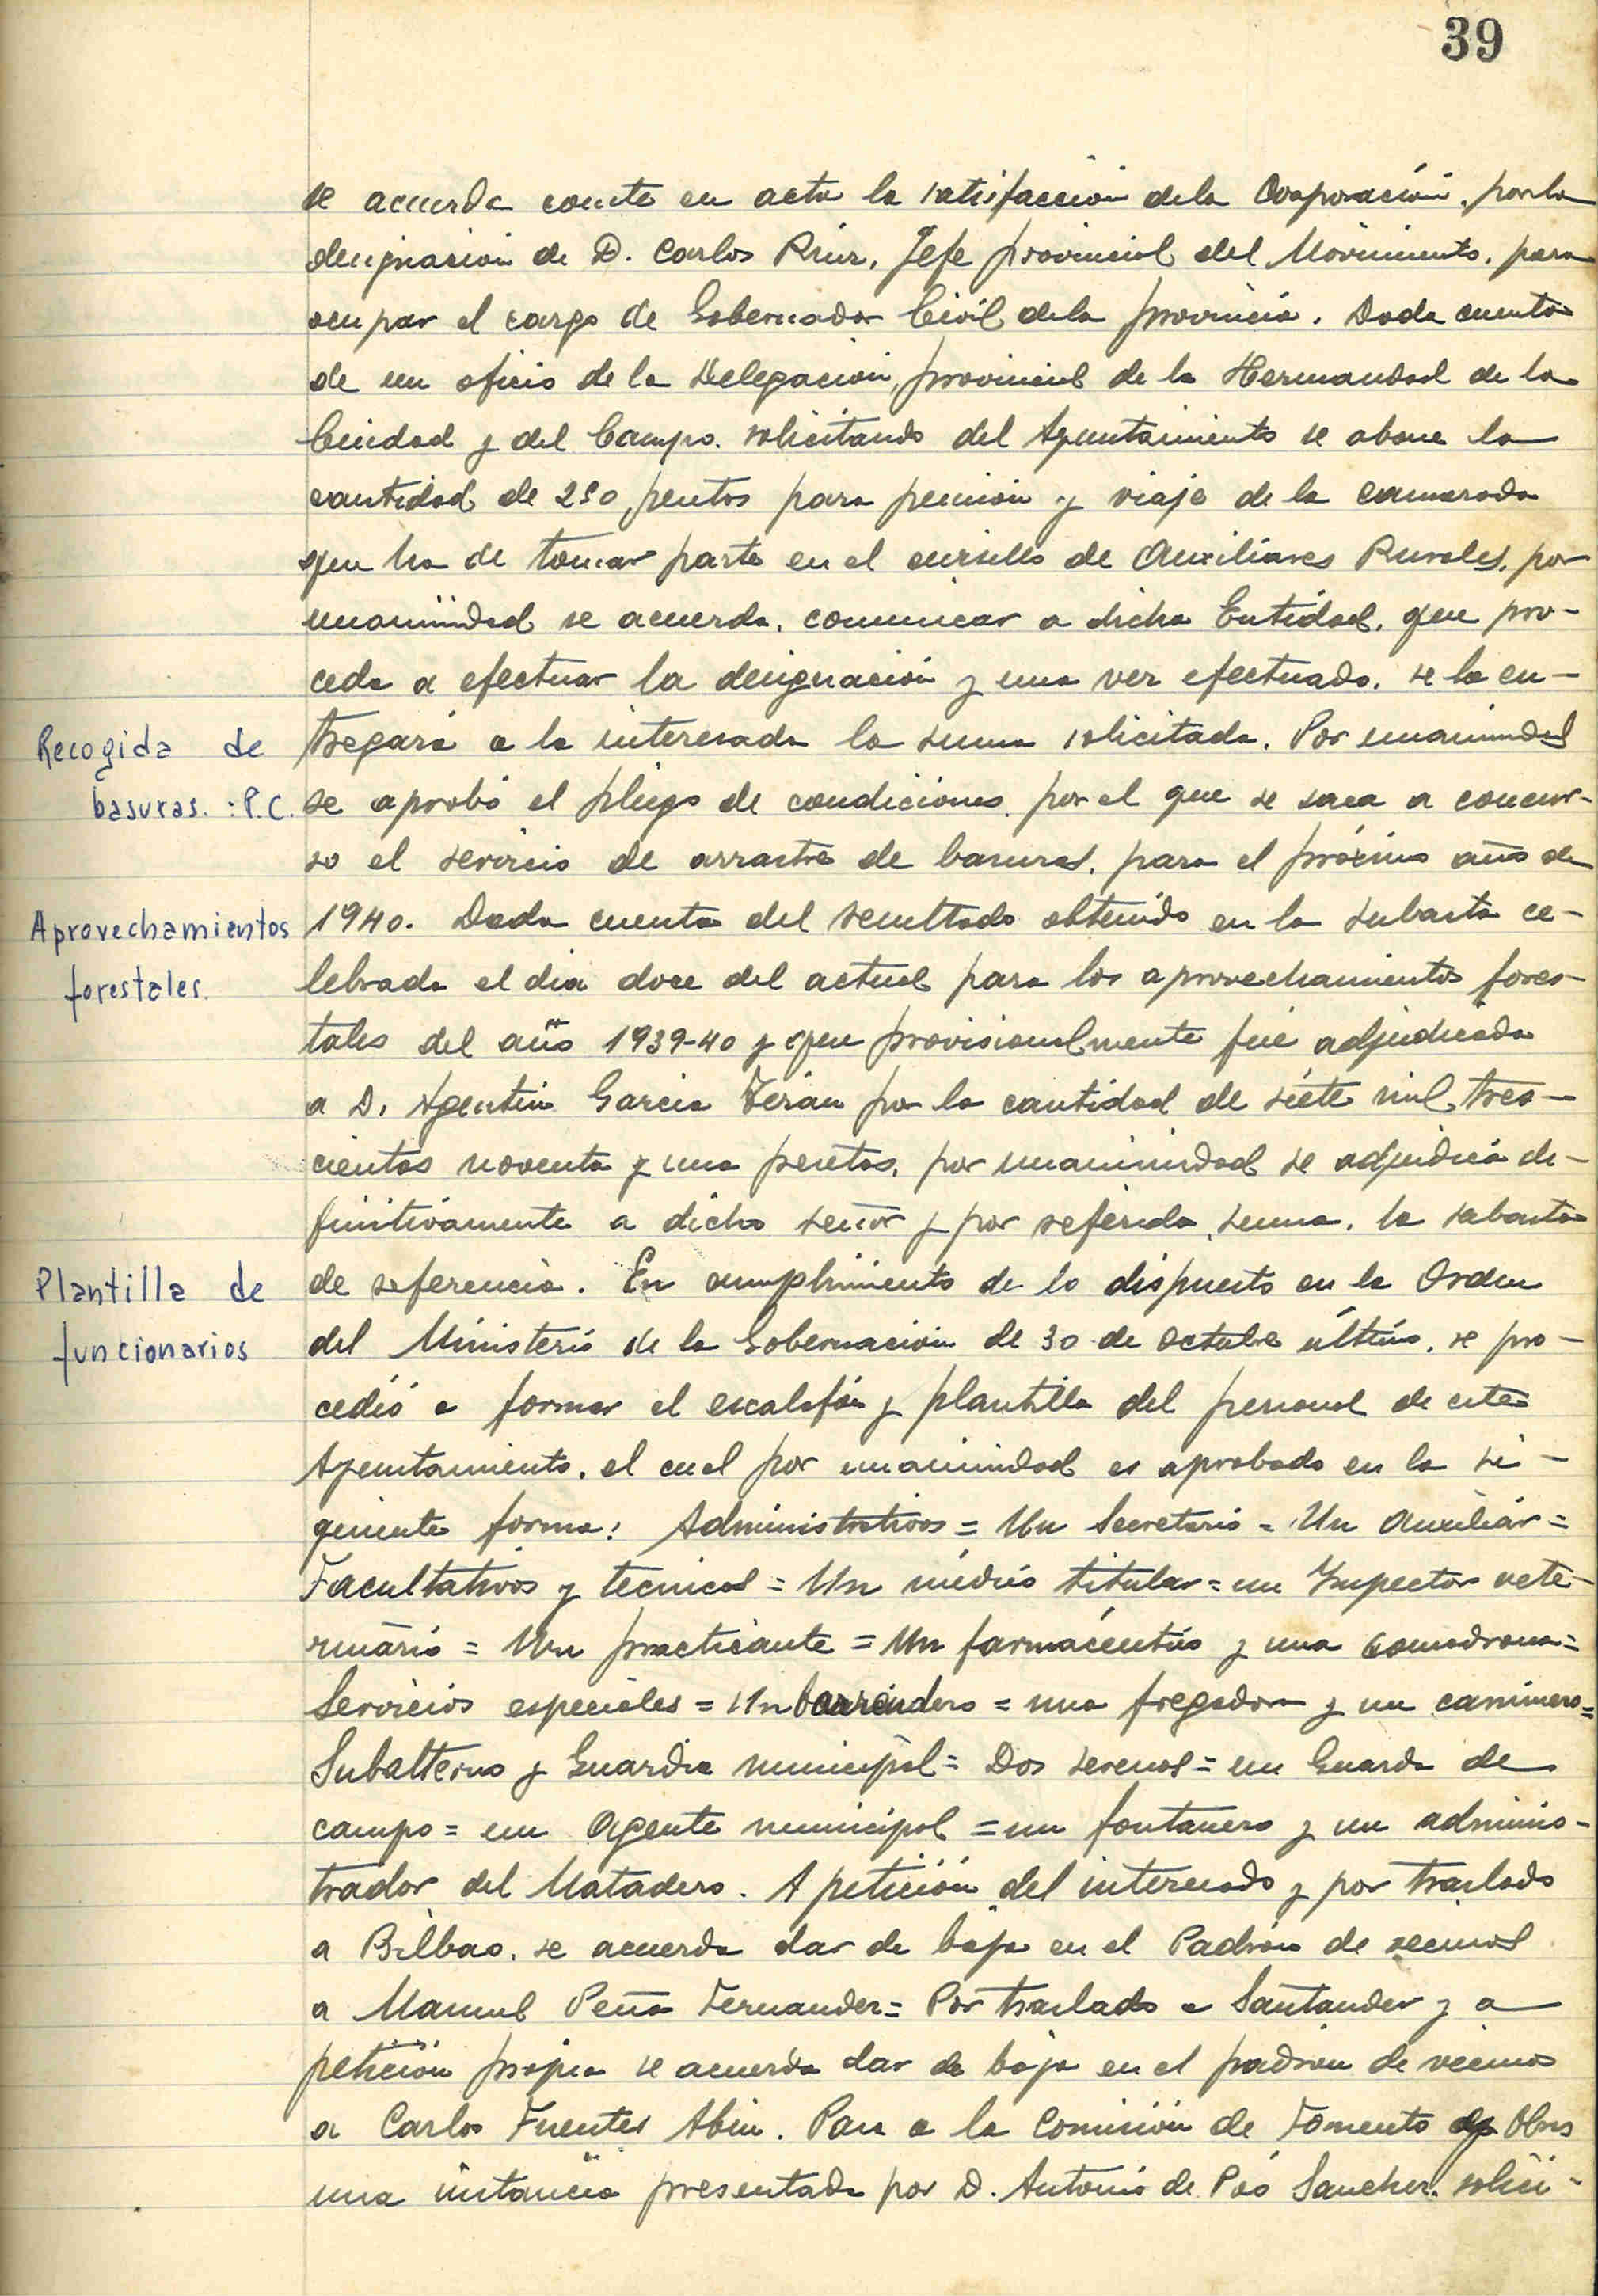 39
se acuerda conste en acta la satisfacción de la Corporación, por la
designación de D. Carlos Ruiz, Jefe provincial del Movimiento, para
ocupar el cargo de Gobernador Civil de la provincia. Dada cuenta
de un oficio de la Delegación provincial de la Hermandad de la
Ciudad y del Campo, solicitando del Ayuntamiento se abone la
cantidad de 250 pesetas para pensión y viaje de la camarada
que ha de tomar parte en el cursillo de Auxiliares Rurales, por
unanimidad se acuerda, comunicar a dicha Entidad, que pro-
ceda a efectuar la designación y una vez efectuada, se la en-
Recogida de
basuras. : P.C.
tregará a la interesada la suma solicitada. Por unanimidad
se aprobó el pliego de condiciones por el que se saca a concur-
so el servicio de arrastre de basuras, para el próximo año de
Aprovechamientos
forestales.
1940. Dada cuenta del resultado obtenido en la subasta ce-
lebrada el día doce del actual para los aprovechamientos fores-
tales del año 1939-40 y que provisionalmente fué adjudicada
a D. Agustín Garcia Terán por la cantidad de siete mil tres-
cientas noventa y una pesetas, por unanimidad se adjudica de-
finitivamente a dicho señor y por referida suma, la subasta
Plantilla de
funcionarios
de referencia. En cumplimiento de lo dispuesto en la Orden
del Ministerio de la Gobernación de 30 de octubre último, se pro-
cedió a formar el escalafón y plantilla del personal de este
Ayuntamiento, el cual por unanimidad es aprobado en la si-
guiente forma: Administrativos = Un Secretario = Un Auxiliar =
Facultativos y tecnicos = Un médico titular = un Inspector vete-
rinario = Un practicante = Un farmacéutico y una comadrona =
Servicios especiales = Un barrendero = una fregadora y un caminero =
Subalterno y Guardia municipal = Dos serenos = un Guarda de
campo = un Agente municipal = un fontanero y un adminis-
trador del Matadero. A petición del interesado y por traslado
a Bilbao, se acuerda dar de baja en el Padrón de vecinos
a Manuel Peña Fernandez = Por traslado a Santander y a
petición propia se acuerda dar de baja en el padrón de vecinos
a Carlos Fuentes Abin. Pasa a la Comisión de Fomento Obras
una instancia presentada por D. Antonio de Pió Sanchez, solici-